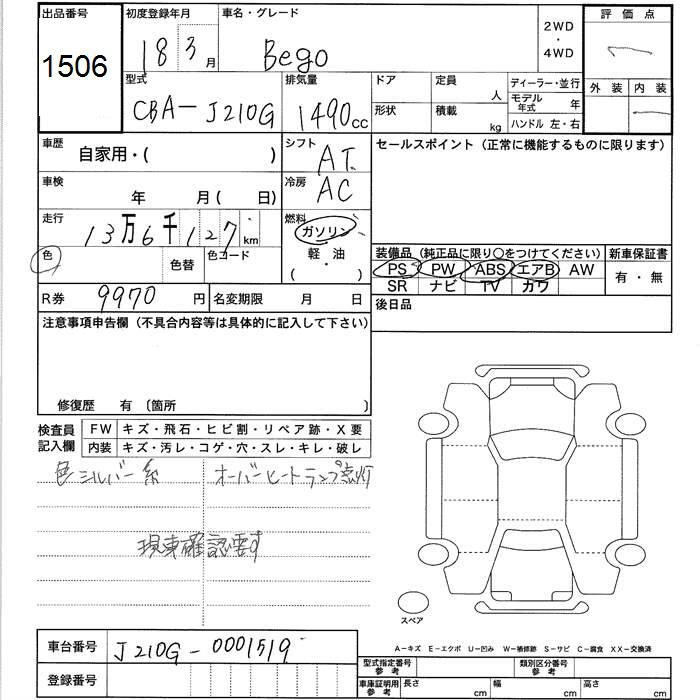 出品番号 初度登録年月 車名・グレード 2WD・4WD 評価点
1506 18 3月 Bego
型式 排気量 ドア 定員 人 ディーラー・並行 外装 内装
CBA-J210G 1490cc 形状 積載 kg モデル年式 年
ハンドル 左・右
車歴 自家用・( ) シフト AT セールスポイント (正常に機能するものに限ります)
車検 年 月( 日) 冷房 AC
走行 13万6千127km 燃料 ガソリン
色 色替 色コード 軽・油
( )
装備品 (純正品に限り○をつけてください) 新車保証書
PS PW ABS エアB AW 有・無
SR ナビ TV カワ
R券 9970円 名変期限 月 日 後日品
注意事項申告欄 (不具合内容等は具体的に記入して下さい)
修復歴 有 〔箇所 〕
検査員記入欄 FW キズ・飛石・ヒビ割・リペア跡・X要
内装 キズ・汚レ・コゲ・穴・スレ・キレ・破レ
色シルバー系 オーバーヒートランプ点灯
現車確認要す
スペア
A-キズ E-エクボ U-凹み W-補修跡 S-サビ C-腐食 XX-交換済
車台番号 J210G-0001519
登録番号
型式指定番号 参考 類別区分番号 参考
車庫証明用 参考 長さ cm 幅 cm 高さ cm